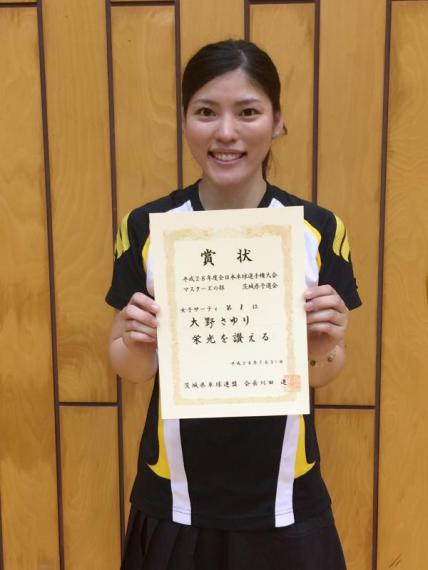 賞状
平成28年度全日本卓球選手権大会
マスターズの部 茨城県予選会
女子サーティ 第1位
大野さゆり
栄光を讃える
茨城県卓球連盟 会長川田 進